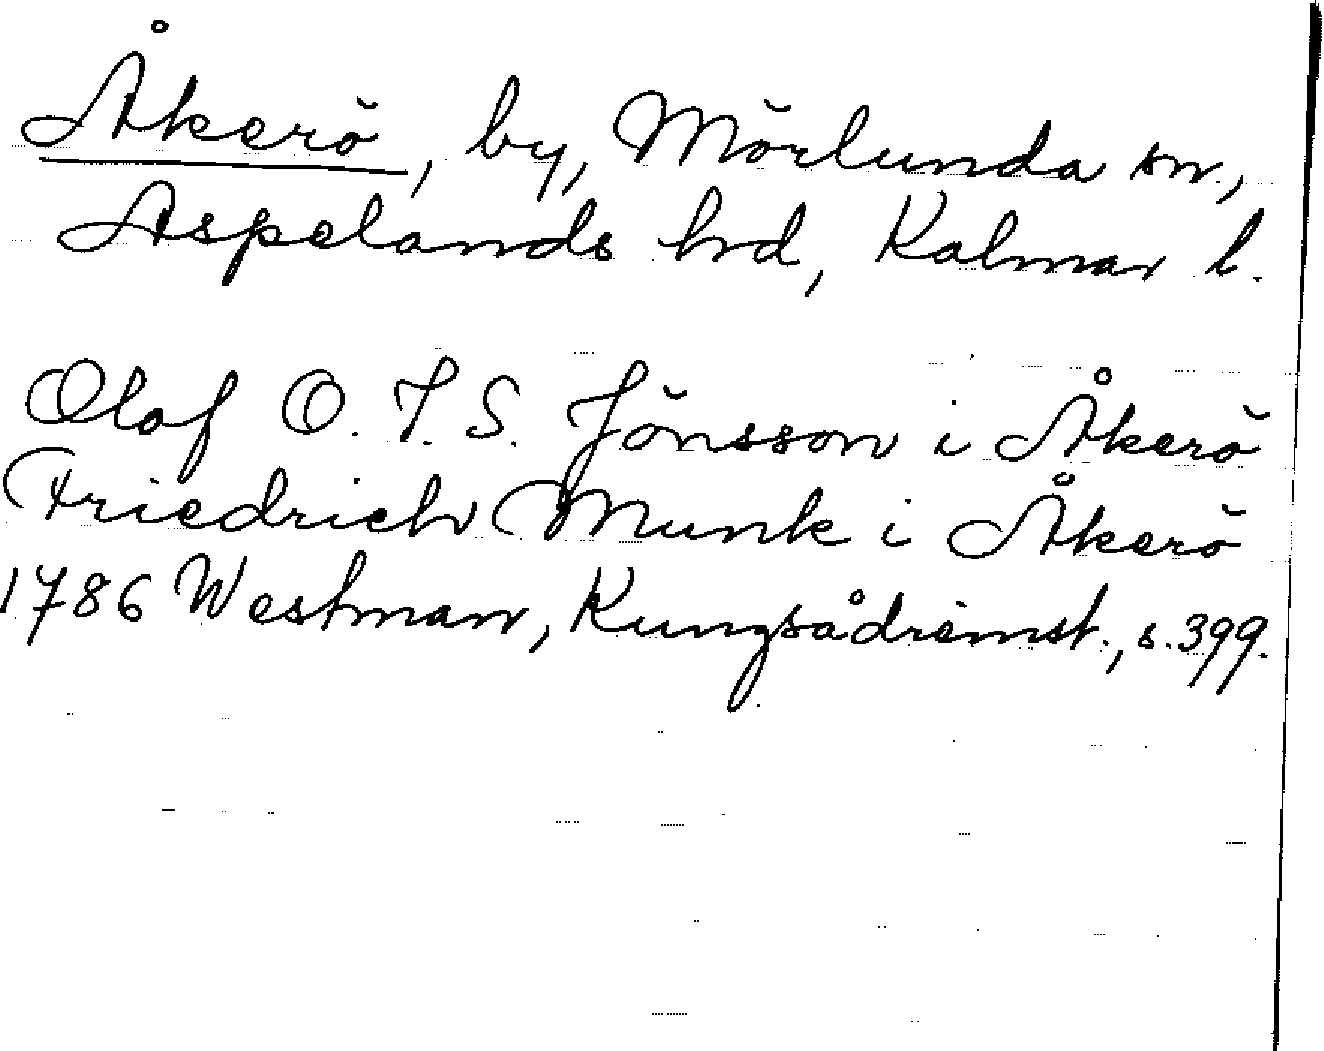 Åkerö, by, Mörlunda sn.,
Aspelands hrd, Kalmar l.
Olof O. T. S. Jönsson i Åkerö
Friedrich Munk i Åkerö
1786 Westman, Kungsådreinst., s. 399.